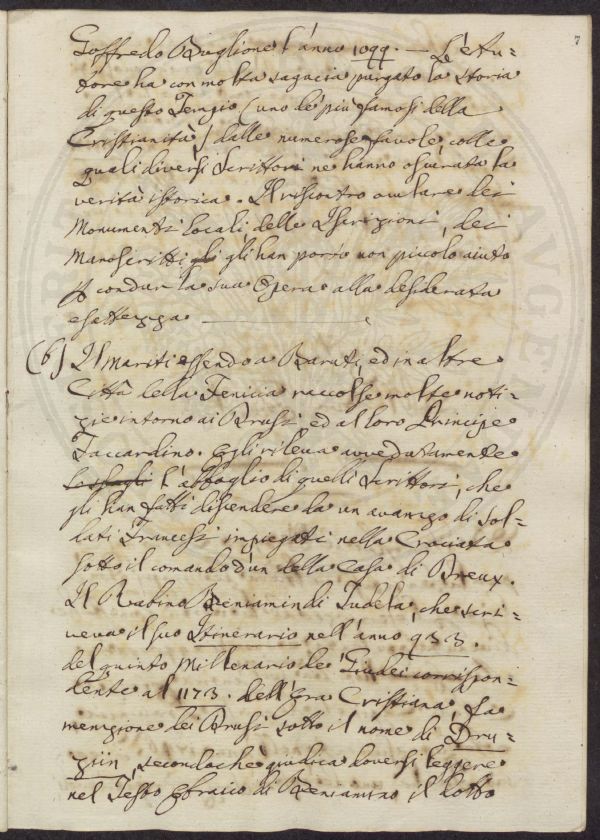 7
Goffredo Buglione l'anno 1099. — L'Au-
tore ha con molta sagacia purgato la storia
di questo Tempio (uno de' più famosi della
Cristianità) dalle numerose favole, colle
quali diversi Scrittori ne hanno oscurata la
verità istorica. Il riscontro oculare dei
Monumenti locali delle Iscrizioni, dei
Manoscritti gli han porto non piccolo aiuto
p condur la sua Opera alla desiderata
esattezza.
(6) Il Mariti essendo a Baruti, ed in altre
Città della Fenicia raccolse molte noti-
zie intorno ai Drusi ed al loro Principe
Faccardino. Egli rileva avvedutamente
l'abbaglio di quelli Scrittori, che
gli han fatti discendere da un avanzo di Sol-
dati Francesi impiegati nella Crociata
sotto il comando d'un della Casa di Dreux.
Il Rabino Beniamin di Tudela, che scri-
veva il suo Itinerario nell'anno 933.
del quinto Millenario de' Giudei corrispon-
dente al 1173. dell'Era Cristiana, fa
menzione dei Drusi sotto il nome di Dru-
ziin, secondo che giudica doversi leggere
nel Testo Ebraico di Beniamino il dotto